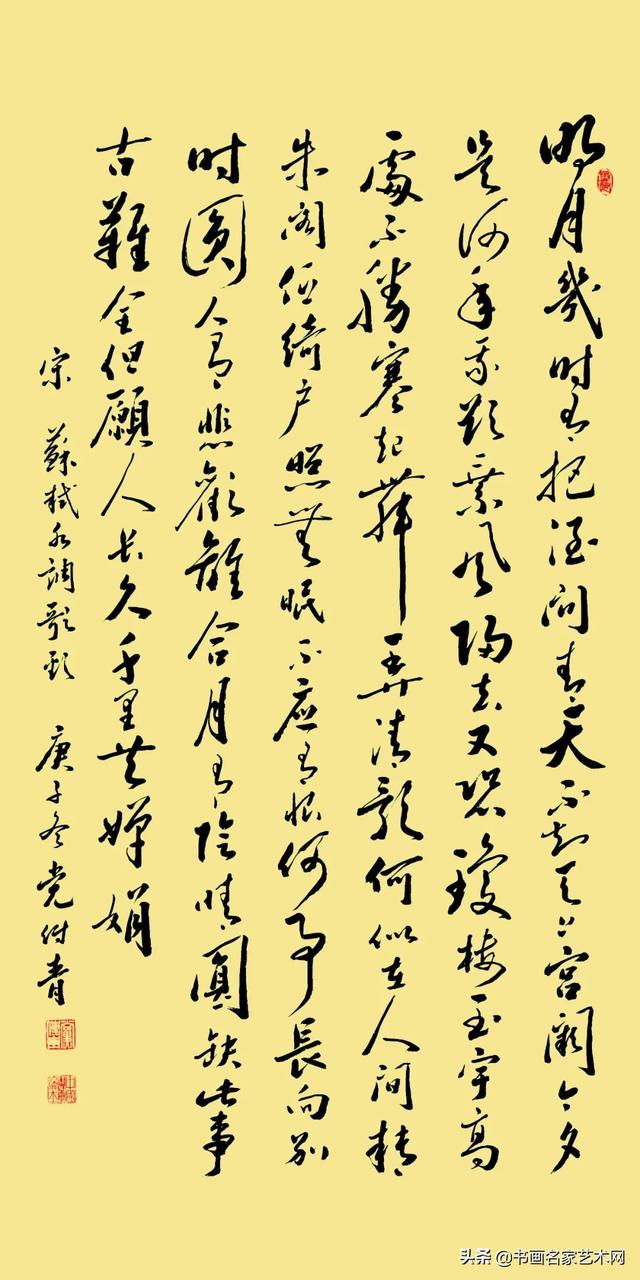 明月幾时有把酒问青天不知天上宫阙今夕
是何年我欲乘风归去又恐瓊楼玉宇高
處不勝寒起舞弄清影何似在人间转
朱阁低绮户照無眠不应有恨何事長向别
时圆人有悲歡離合月有陰晴圓缺此事
古難全但願人长久千里共嬋娟
宋 蘇軾水调歌头 庚子冬党付青
头条 @书画名家艺术网